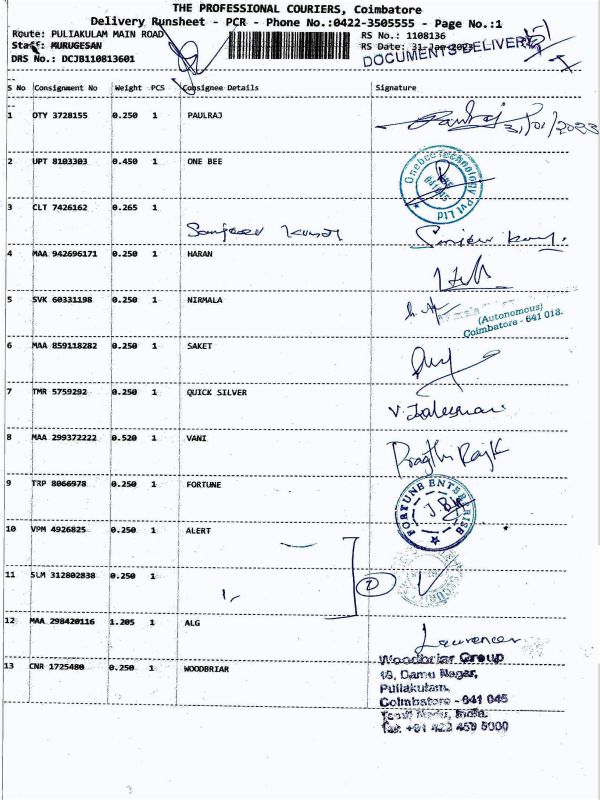 THE PROFESSIONAL COURIERS, Coimbatore
Delivery Runsheet - PCR - Phone No.:0422-3505555 - Page No.:1
Route: PULIAKULAM MAIN ROAD RS No.: 1108136
Staff: MURUGESAN RS Date: 31-Jan-2023
DRS No.: DCJB110813601 DOCUMENTS DELIVERY
S No Consignment No Weight PCS Consignee Details Signature
1 OTY 3728155 0.250 1 PAULRAJ Paulraj 31/01/2023
2 UPT 8103303 0.450 1 ONE BEE Onebee Technology Pvt Ltd
3 CLT 7426162 0.265 1
Sanjeev Kumar
4 MAA 942696171 0.250 1 HARAN
5 SVK 60331198 0.250 1 NIRMALA
(Autonomous)
Coimbatore - 641 018.
6 MAA 859118282 0.250 1 SAKET
7 TMR 5759292 0.250 1 QUICK SILVER
8 MAA 299372222 0.520 1 VANI
9 TRP 8066978 0.250 1 FORTUNE FORTUNE ENTERPRISE
10 VPM 4926825 0.250 1 ALERT
11 SLM 312802838 0.250 1
12 MAA 298420116 1.205 1 ALG
Lawrence
13 CNR 1725480 0.250 1 WOODBRIAR
Woodbriar Group
18, Damu Nagar,
Puliakulam,
Coimbatore - 641 045
Tamil Nadu, India.
Tel: +91 422 459 5000